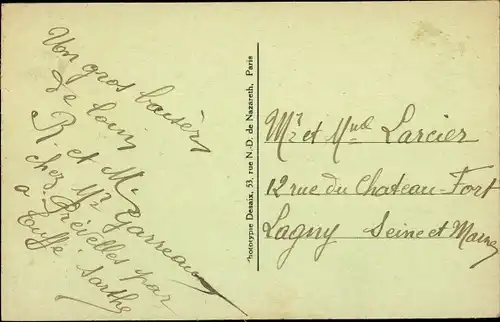 Un gros baisèr
de loin
R. et M. Garreau
chez Mr
Prévelles par
a Tuffé Sarthe
Phototypie Desaix, 53, rue N.-D. de Nazareth, Paris
Mr et Mme Larcier
12 rue du Chateau-Fort
Lagny Seine et Marne